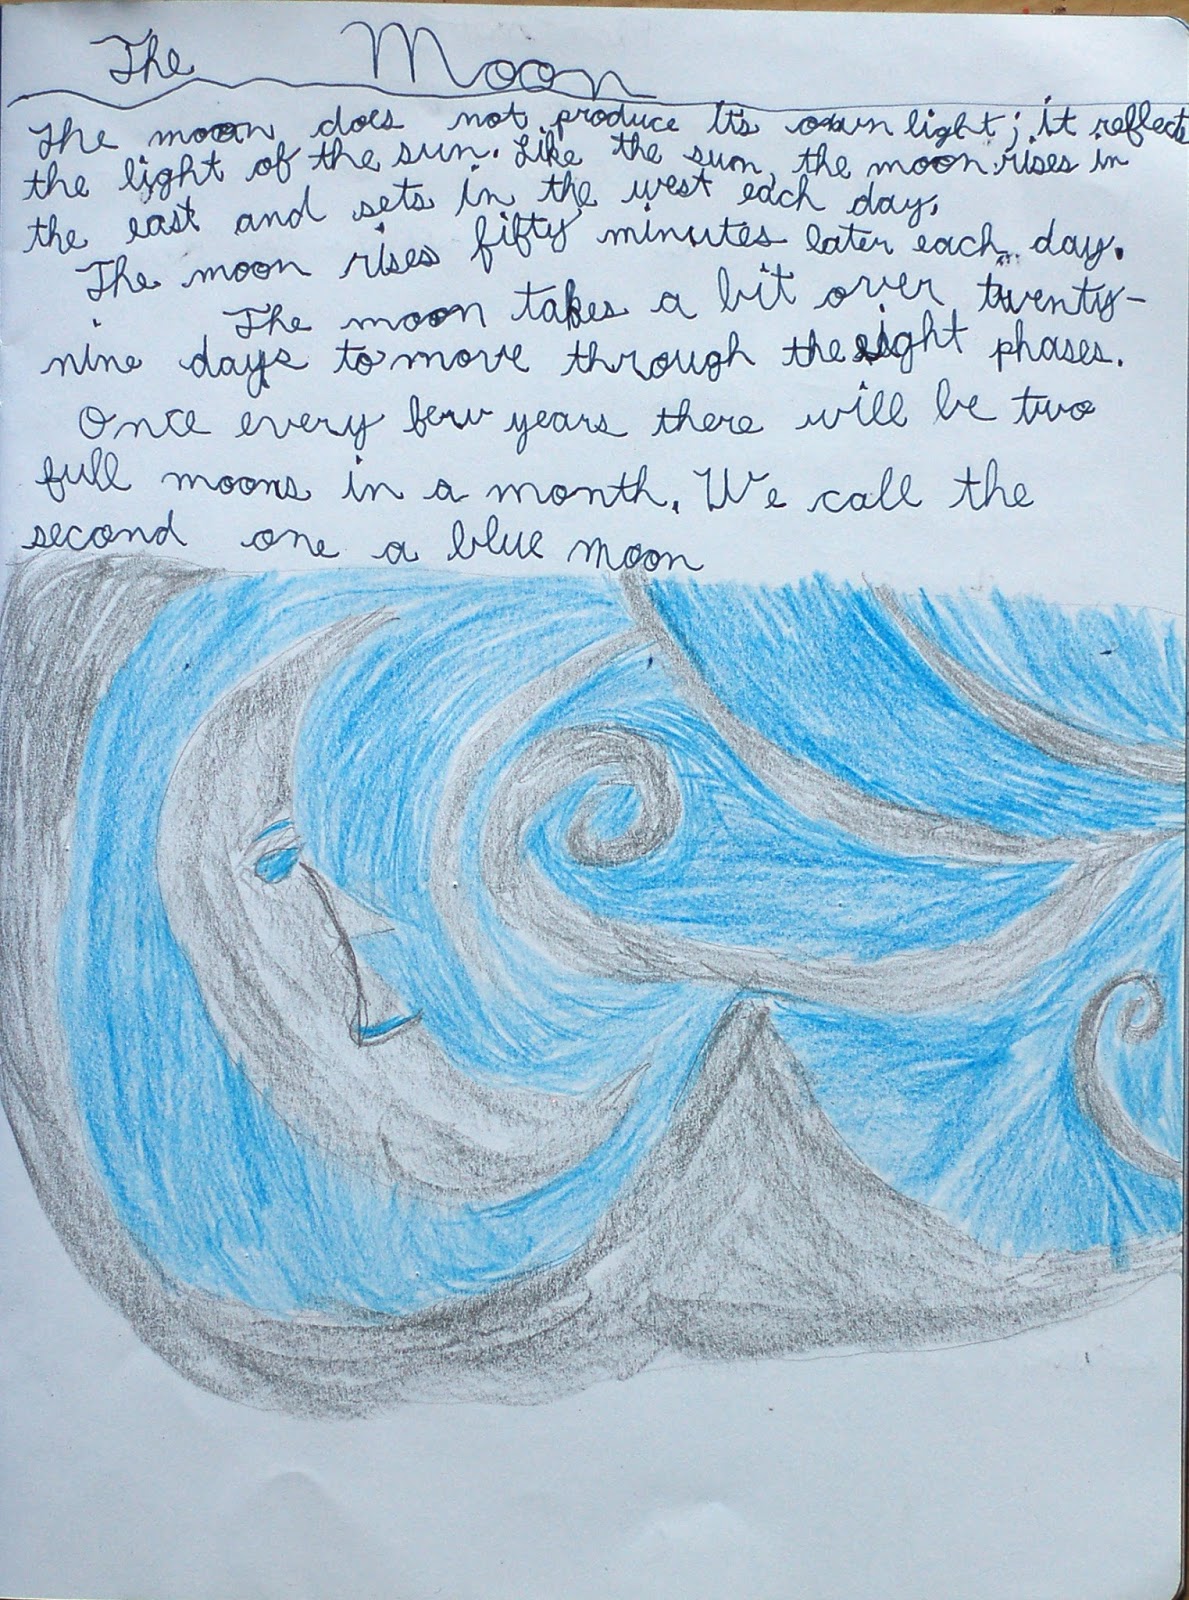 The Moon
The moon does not produce its own light; it reflects
the light of the sun. Like the sun, the moon rises in
the east and sets in the west each day.
The moon rises fifty minutes later each day.
The moon takes a bit over twenty-
nine days to move through the eight phases.
Once every few years there will be two
full moons in a month. We call the
second one a blue moon